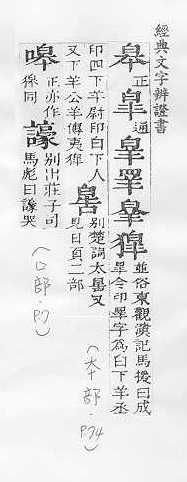 經典文字辨證書
皋正臯通皐睪皋獋並俗東觀漢記馬援曰成
皋令印皋字為白下羊丞
印四下羊尉印白下人
又下羊公羊傳夷獋
別楚詞太皞又
見日頁二部
(大部.P.74)
嘷正亦作
同
譹別出莊子司
馬彪曰譹哭
(口部.P.7)